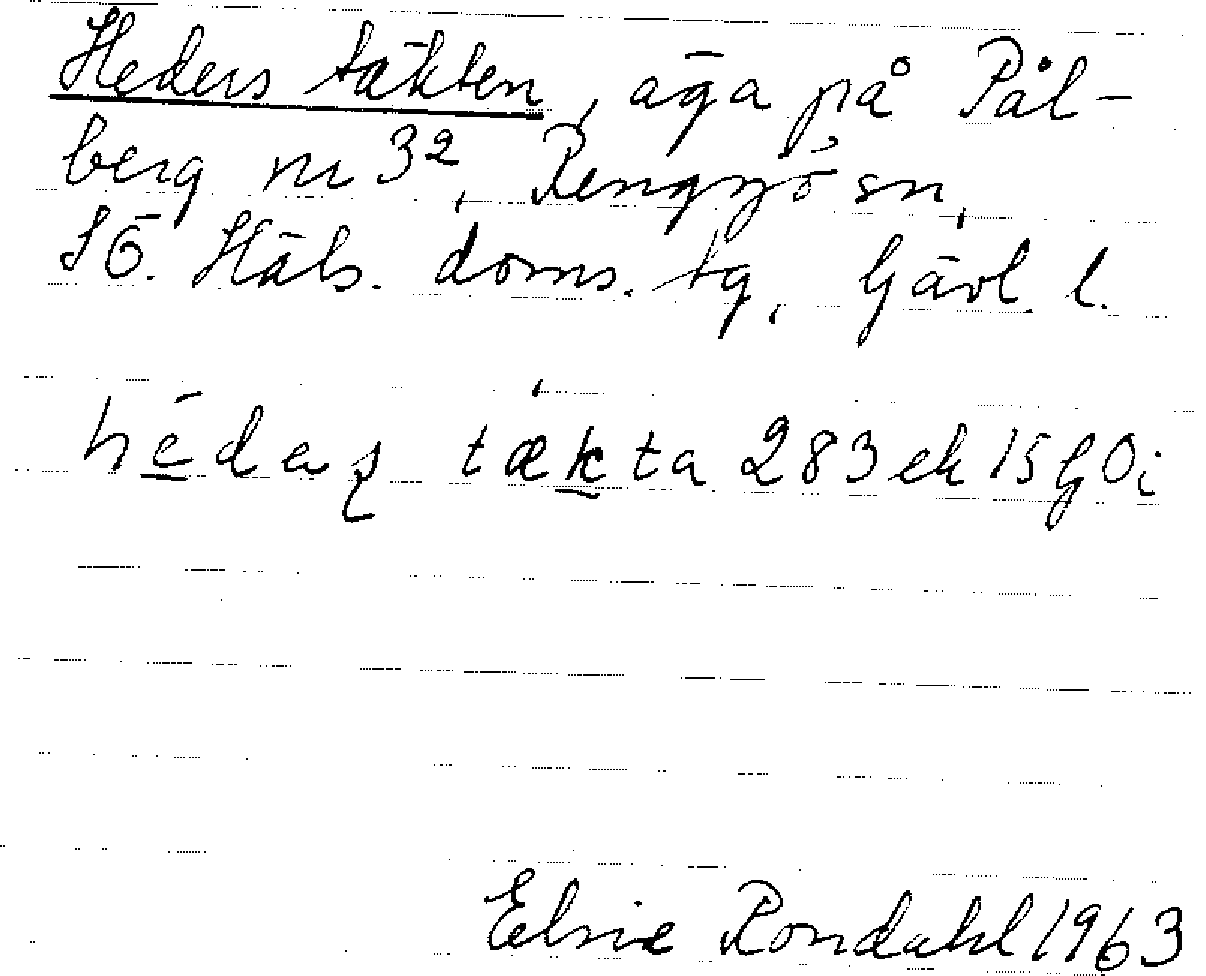 Heders täkten, äga på Pål-
berg nr 3², Rengsjö sn,
SÖ. Häls. doms. tg, Gävl. l.
hedaʂ tækta 283 ek 15 GOi
Elsie Rondahl 1963